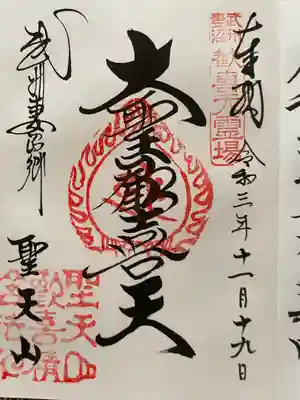 武州
妻沼
歓喜天霊場
奉拝
令和三年十一月十九日
大聖歓喜天
武州妻沼郷
聖天山
聖天山